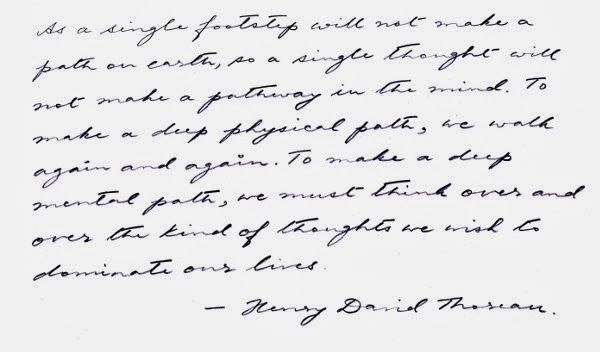 As a single footstep will not make a
path on earth, so a single thought will
not make a pathway in the mind. To
make a deep physical path, we walk
again and again. To make a deep
mental path, we must think over and
over the kind of thoughts we wish to
dominate our lives.
— Henry David Thoreau.